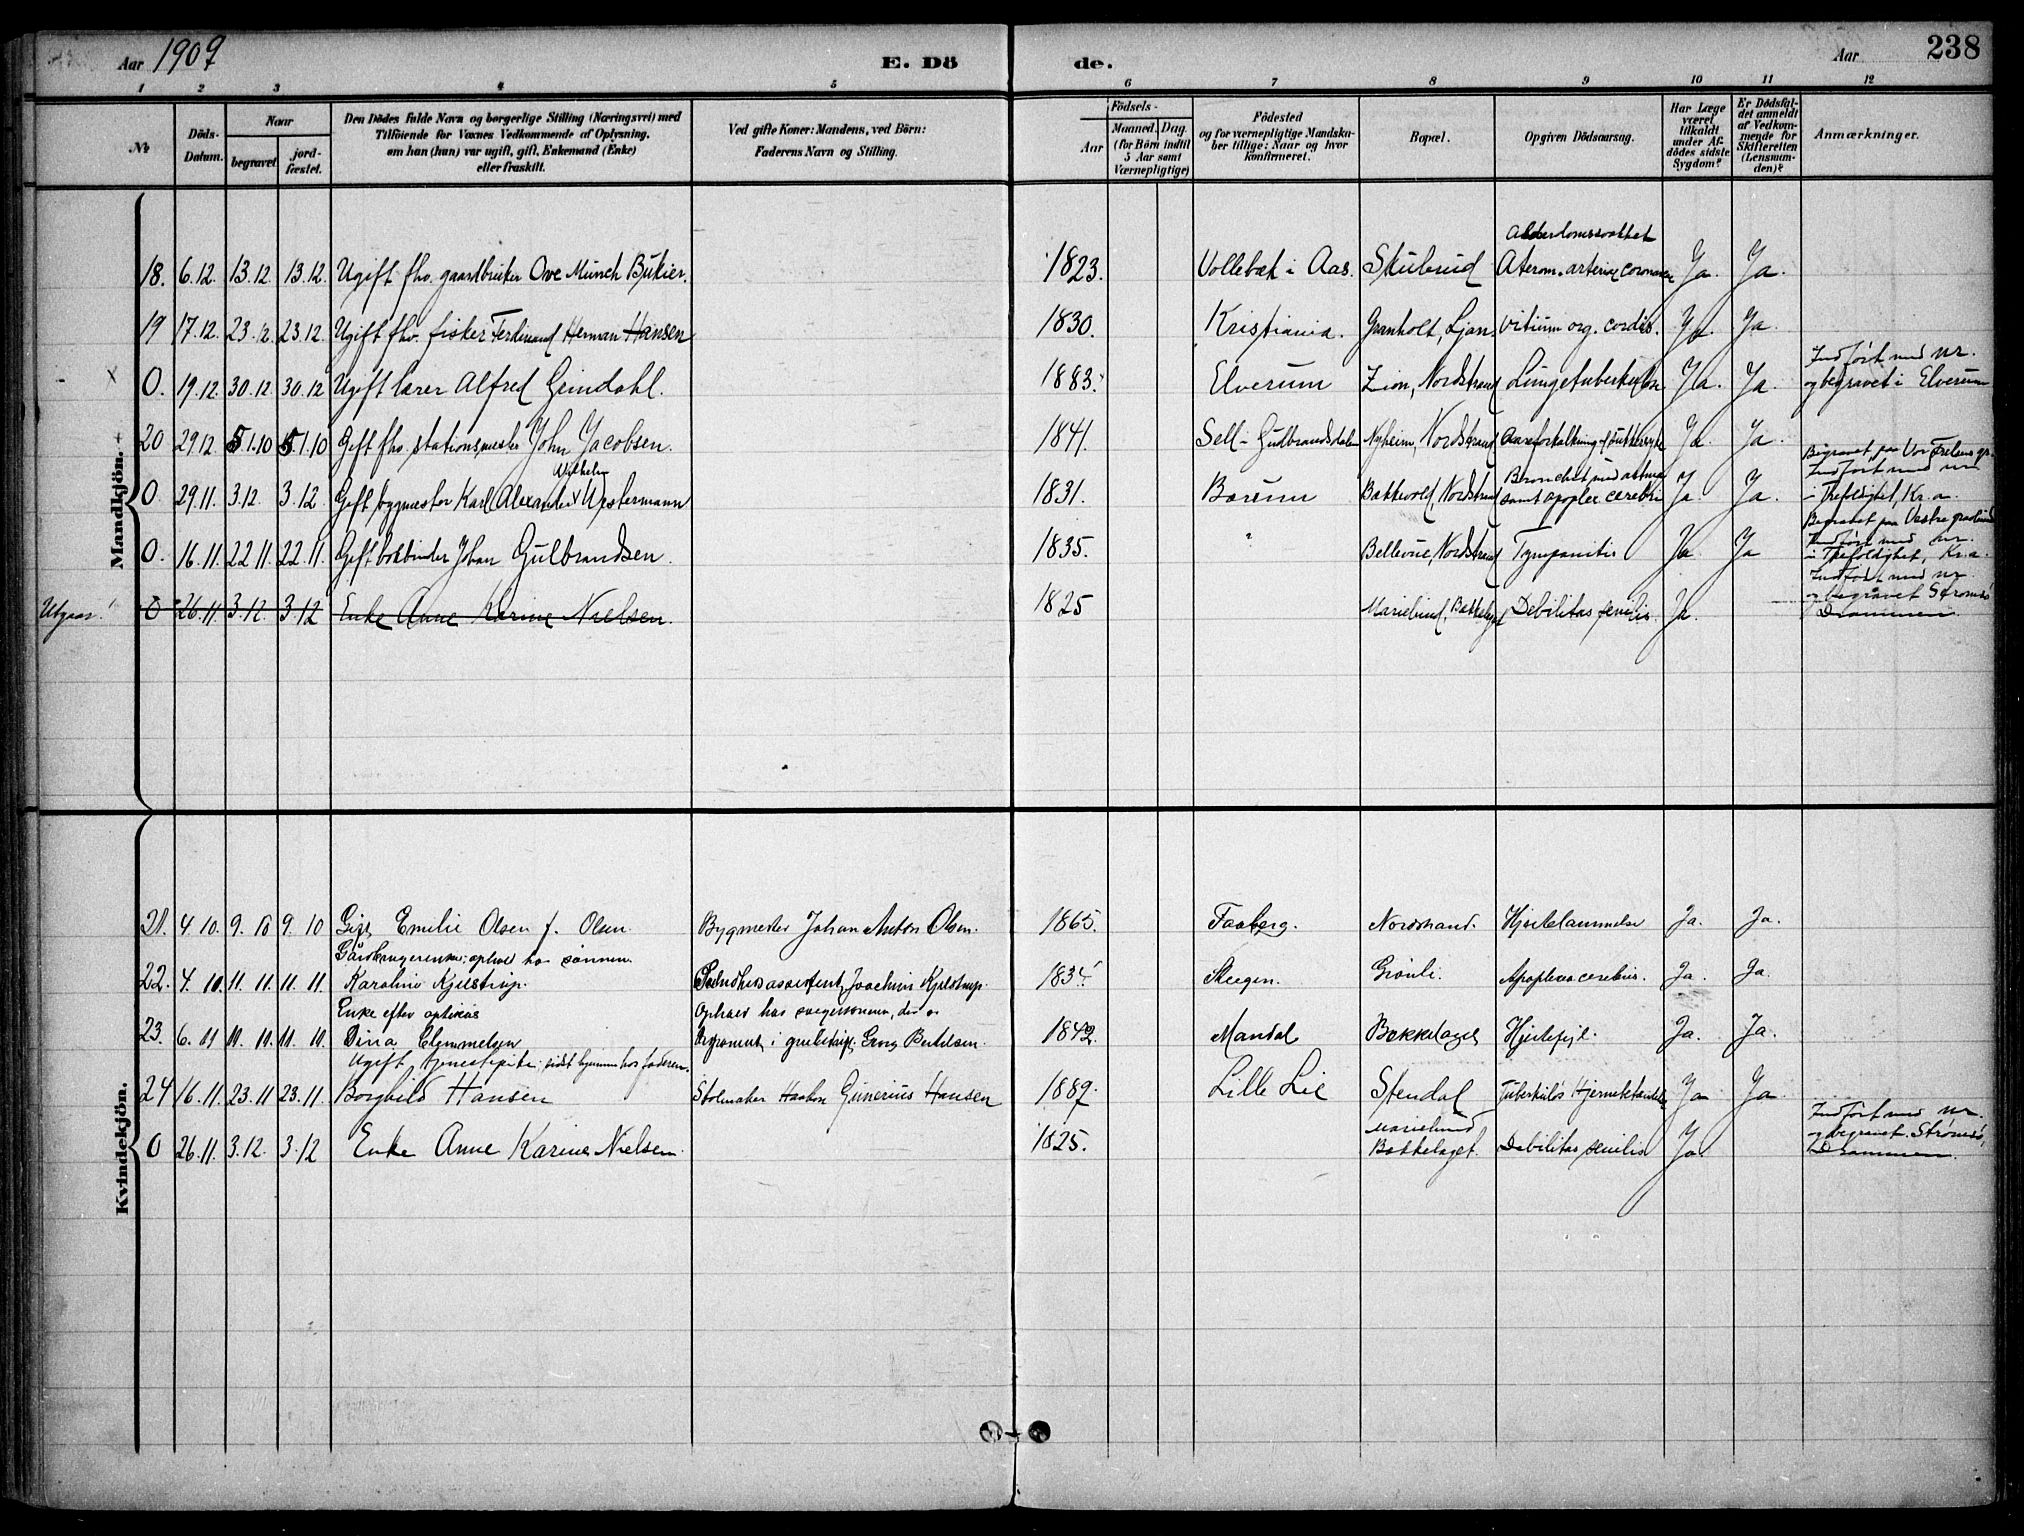 Aar 1909
E. Dö
de.
Aar
238
1 2 3 4 5 6 7 8 9 10 11 12
No
Döds-Datum.
Naar
begravet
jord-fæstet.
Den Dödes fulde Navn og borgerlige Stilling (Næringsvei) med
Tilföiende for Voxnes Vedkommende af Oplysning,
om han (hun) var ugift, gift, Enkemand (Enke)
eller fraskilt.
Ved gifte Koner: Mandens, ved Börn:
Faderens Navn og Stilling.
Födsels-
Aar
Maaned. Dag.
(for Börn indtil
5 Aar samt
Værnepligtige)
Födested
og for værnepligtige Mandska-
ber tillige: Naar og hvor
konfirmeret.
Bopæl.
Opgiven Dödsaarsag.
Har Læge
været
tilkaldt
under Af-
dödes sidste
Sygdom?
Er Dödsfal-
det anmeldt
af Vedkom-
mende for
Skifteretten
(Lensman-
den)?
Anmærkninger.
Mandkjön.
18. 6.12. 13.12 13.12. Ugift fhv. gaardbruker Ove Munch Bukier. 1823. Vollebæk i Aas. Skulerud Alderdomssvakhet Aterom. arteriæ coronariæ Ja. Ja.
19 17.12. 23.12. 23.12. Ugift fhv. fisker Ferdinand Herman Hansen 1830. Kristiania. Granholt, Ljan. Vitium org. cordis. Ja. Ja.
0. 19.12. 30.12 30.12 Ugift lærer Alfred Grindahl. 1883. Elverum Zion, Nordstrand Lungetuberkulose Ja. Ja. Indført med nr. og begravet i Elverum
20 29.12 5.1.10 5.1.10 Gift fhv. stationsmester John Jacobsen. 1841. Sell - Gudbrandsdalen Nyheim, Nordstrand Aareforkalkning Ja. Ja. Begravet paa Vor Frelsers gr.
0 29.11. 3.12. 3.12 Gift bygmester Karl Alexander Vilhelm Westermann 1831. Bærum Bakkevold, Nordstrand Bronchit med astma samt apoplex. cerebri Ja Ja. Indført med nr i Trefoldighet, Kr.a.
0. 16.11. 22.11. 22.11. Gift bokbinder Johan Gulbrandsen. 1835. " Bellevue, Nordstrand Tympanitis Ja. Ja Begravet paa Vestre gravlund Indført med nr. i Trefoldighet, Kr.a.
Utgaar! 0 26.11. 3.12. 3.12 Enke Anne Karine Nielsen. 1825 Marielund, Bækkelaget Debilitas senilis. Ja. Indført med nr. og begravet Strømsø Drammen.
Kvindekjön.
21. 4.10. 9.10 9.10 Gift Emilie Olsen f. Olsen. Bygmester Johan Anton Olsen. 1865. Faaberg. Nordstrand. Hjertelammelse Ja. Ja.
22. 4.10. 11.11. 11.11. Karoline Kjelstrup. Joachim Kjelstrup. 1834. Steegen. Grönli. Apoplexia cerebri. Ja. Ja.
23. 6.11 11.11. 11.11. Enke efter optikus Dina Clemmetsen Ophold hos svigersønnen, Bertelsen. 1842. Mandal Bækkelaget Hjertefejl. Ja. Ja.
24 16.11. 23.11 23.11. Ugift tjenestepike sidst hjemme hos faderen. Borghild Hansen Stolmaker Haakon Gunerius Hansen 1889. Lille Lie Stendal Tuberkuløs Hjernebetændelse Ja Ja.
0 26.11. 3.12. 3.12 Enke Anne Karine Nielsen. 1825. Marielund Bækkelaget. Debilitas senilis Ja. Indført med nr. og begravet Strømsø, Drammen.